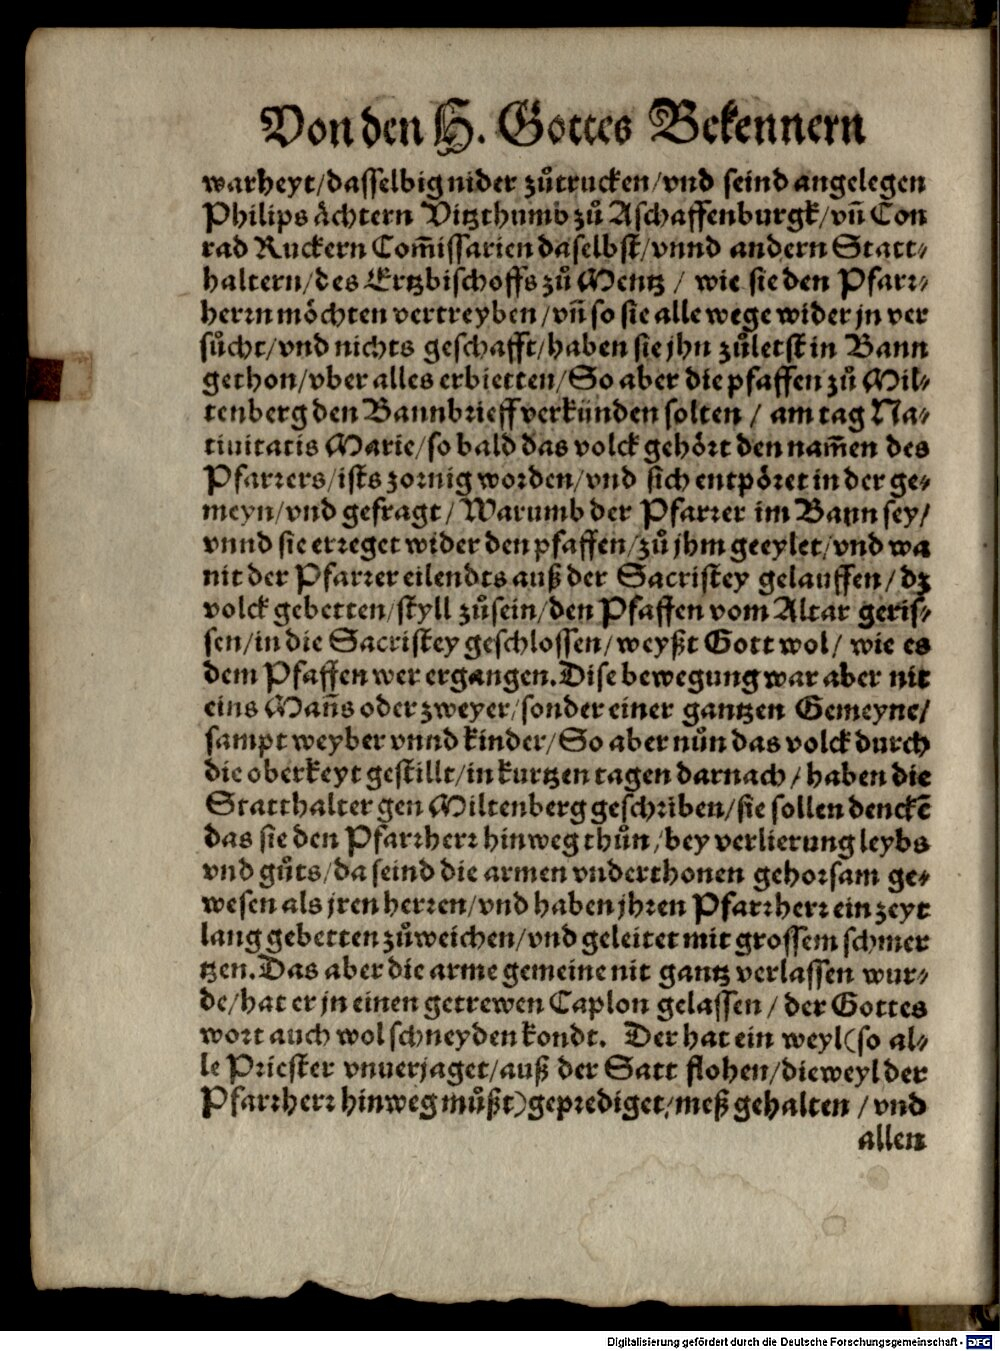 Von den H. Gottes Bekennern
warheyt/dasselbig nider zůtrucken/vnd seind angelegen
Philips ächtern Vitzthumb zů Aschaffenburgk/vñ Con
rad Ruckern Com̃issarien daselbst/vnnd andern Statt⸗
haltern/des Ertzbischoffs zů Mentz / wie sie den Pfarr⸗
herrn möchten vertreyben/vñ so sie alle wege wider jn ver
sůcht/vnd nichts geschafft/haben sie jhn zůletst in Bann
gethon/vber alles erbietten/So aber die pfaffen zů Mil⸗
tenberg den Bannbrieff verkünden solten / am tag Na⸗
tiuitatis Marie/so bald das volck gehört den nam̃en des
Pfarrers/ists zornig worden/vnd sich entpöret in der ge⸗
meyn/vnd gefragt/ Warumb der Pfarrer im Bann sey/
vnnd sie erreget wider den pfaffen/zů jhm geeylet/vnd wa
nit der Pfarrer eilendts auß der Sacristey gelauffen/ dz
volck gebetten/styll zůsein/den Pfaffen vom Altar geris⸗
sen/in die Sacristey geschlossen/weyßt Gott wol/ wie es
dem Pfaffen wer ergangen. Dise bewegung war aber nit
eins Mañs oder zweyer/sonder einer gantzen Gemeyne/
sampt weyber vnnd kinder/So aber nůn das volck durch
die oberkeyt gestillt/in kurtzen tagen darnach/ haben die
Statthalter gen Miltenberg geschriben/sie sollen denckẽ
das sie den Pfarrherr hinweg thůn/bey verlierung leybs
vnd gůts/da seind die armen vnderthonen gehorsam ge⸗
wesen als jren herren/vnd haben jhren Pfarrherr ein zeyt
lang gebetten zůweichen/vnd geleitet mit grossem schmer
tzen. Das aber die arme gemeine nit gantz verlassen wur⸗
de/hat er jn einen getrewen Caplon gelassen/ der Gottes
wort auch wol schneyden kondt. Der hat ein weyl(so al⸗
le Priester vnuerjaget/auß der Satt flohen/dieweyl der
Pfarrherr hinweg můßt)geprediget/meß gehalten /vnd
allen
Digitalisierung gefördert durch die Deutsche Forschungsgemeinschaft - DFG